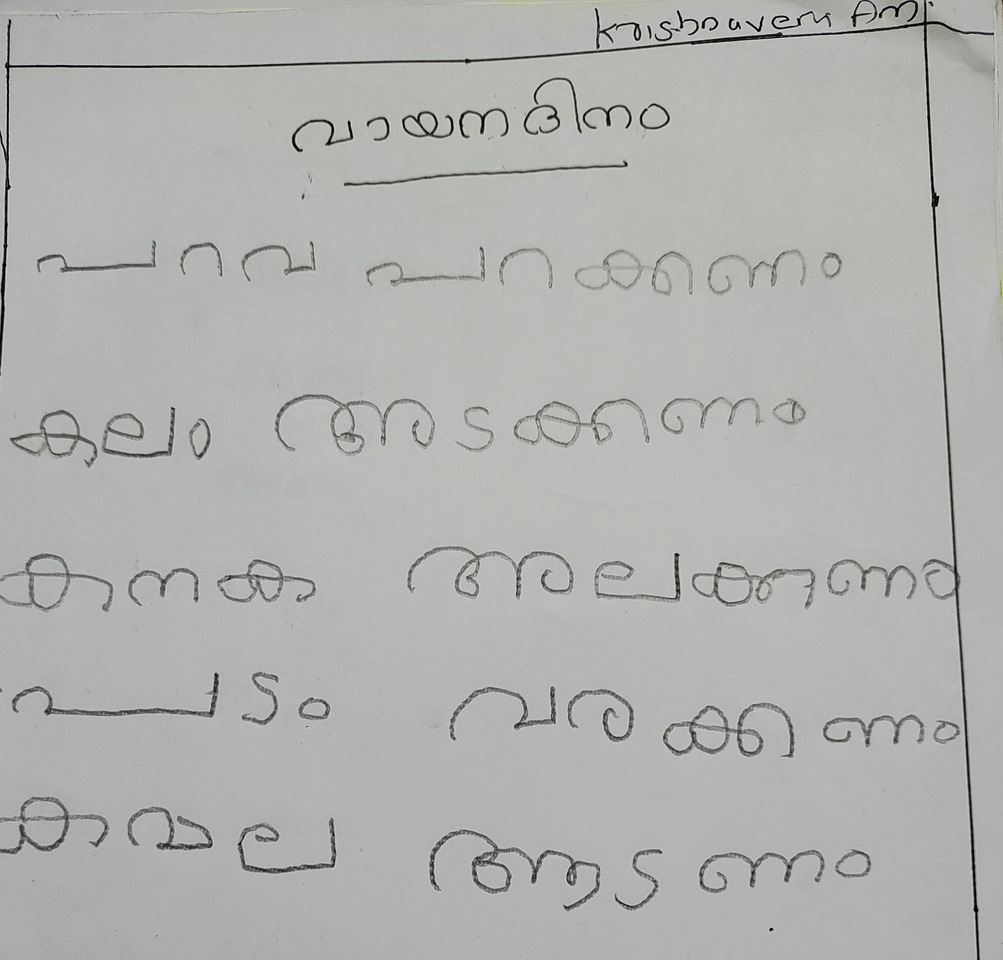 Krishnaveni Am
വായനദിനം
പറവ പറക്കണം
കലം അടക്കണം
കനക അലക്കണം
പടം വരക്കണം
കവല ആടണം